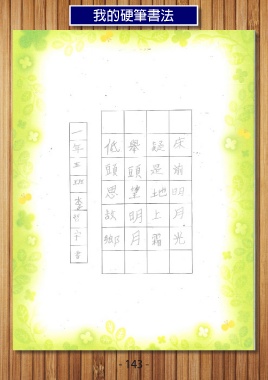 我的硬筆書法
床前明月光
疑是地上霜
舉頭望明月
低頭思故鄉
一年五班李
- 143 -